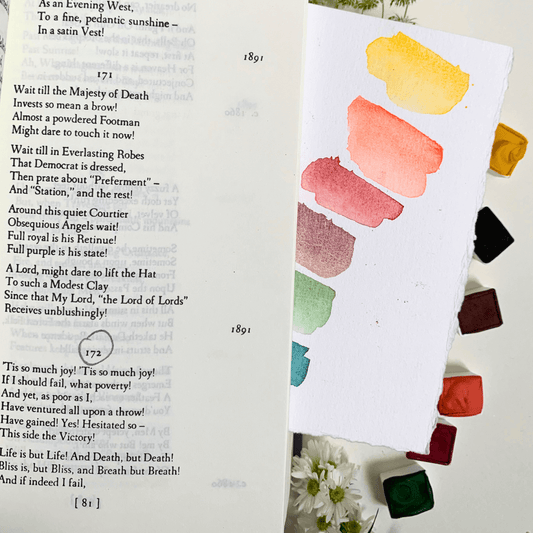 As an Evening West,
To a fine, pedantic sunshine –
In a satin Vest!
1891
171
Wait till the Majesty of Death
Invests so mean a brow!
Almost a powdered Footman
Might dare to touch it now!
Wait till in Everlasting Robes
That Democrat is dressed,
Then prate about "Preferment" –
And "Station," and the rest!
Around this quiet Courtier
Obsequious Angels wait!
Full royal is his Retinue!
Full purple is his state!
A Lord, might dare to lift the Hat
To such a Modest Clay
Since that My Lord, "the Lord of Lords"
Receives unblushingly!
1891
172
'Tis so much joy! 'Tis so much joy!
If I should fail, what poverty!
And yet, as poor as I,
Have ventured all upon a throw!
Have gained! Yes! Hesitated so –
This side the Victory!
Life is but Life! And Death, but Death!
Bliss is, but Bliss, and Breath but Breath!
And if indeed I fail,
[ 81 ]